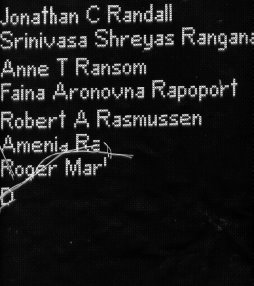 Jonathan C Randall
Srinivasa Shreyas Rangana
Anne T Ransom
Faina Aronovna Rapoport
Robert A Rasmussen
Amenia Ra
Roger Mar